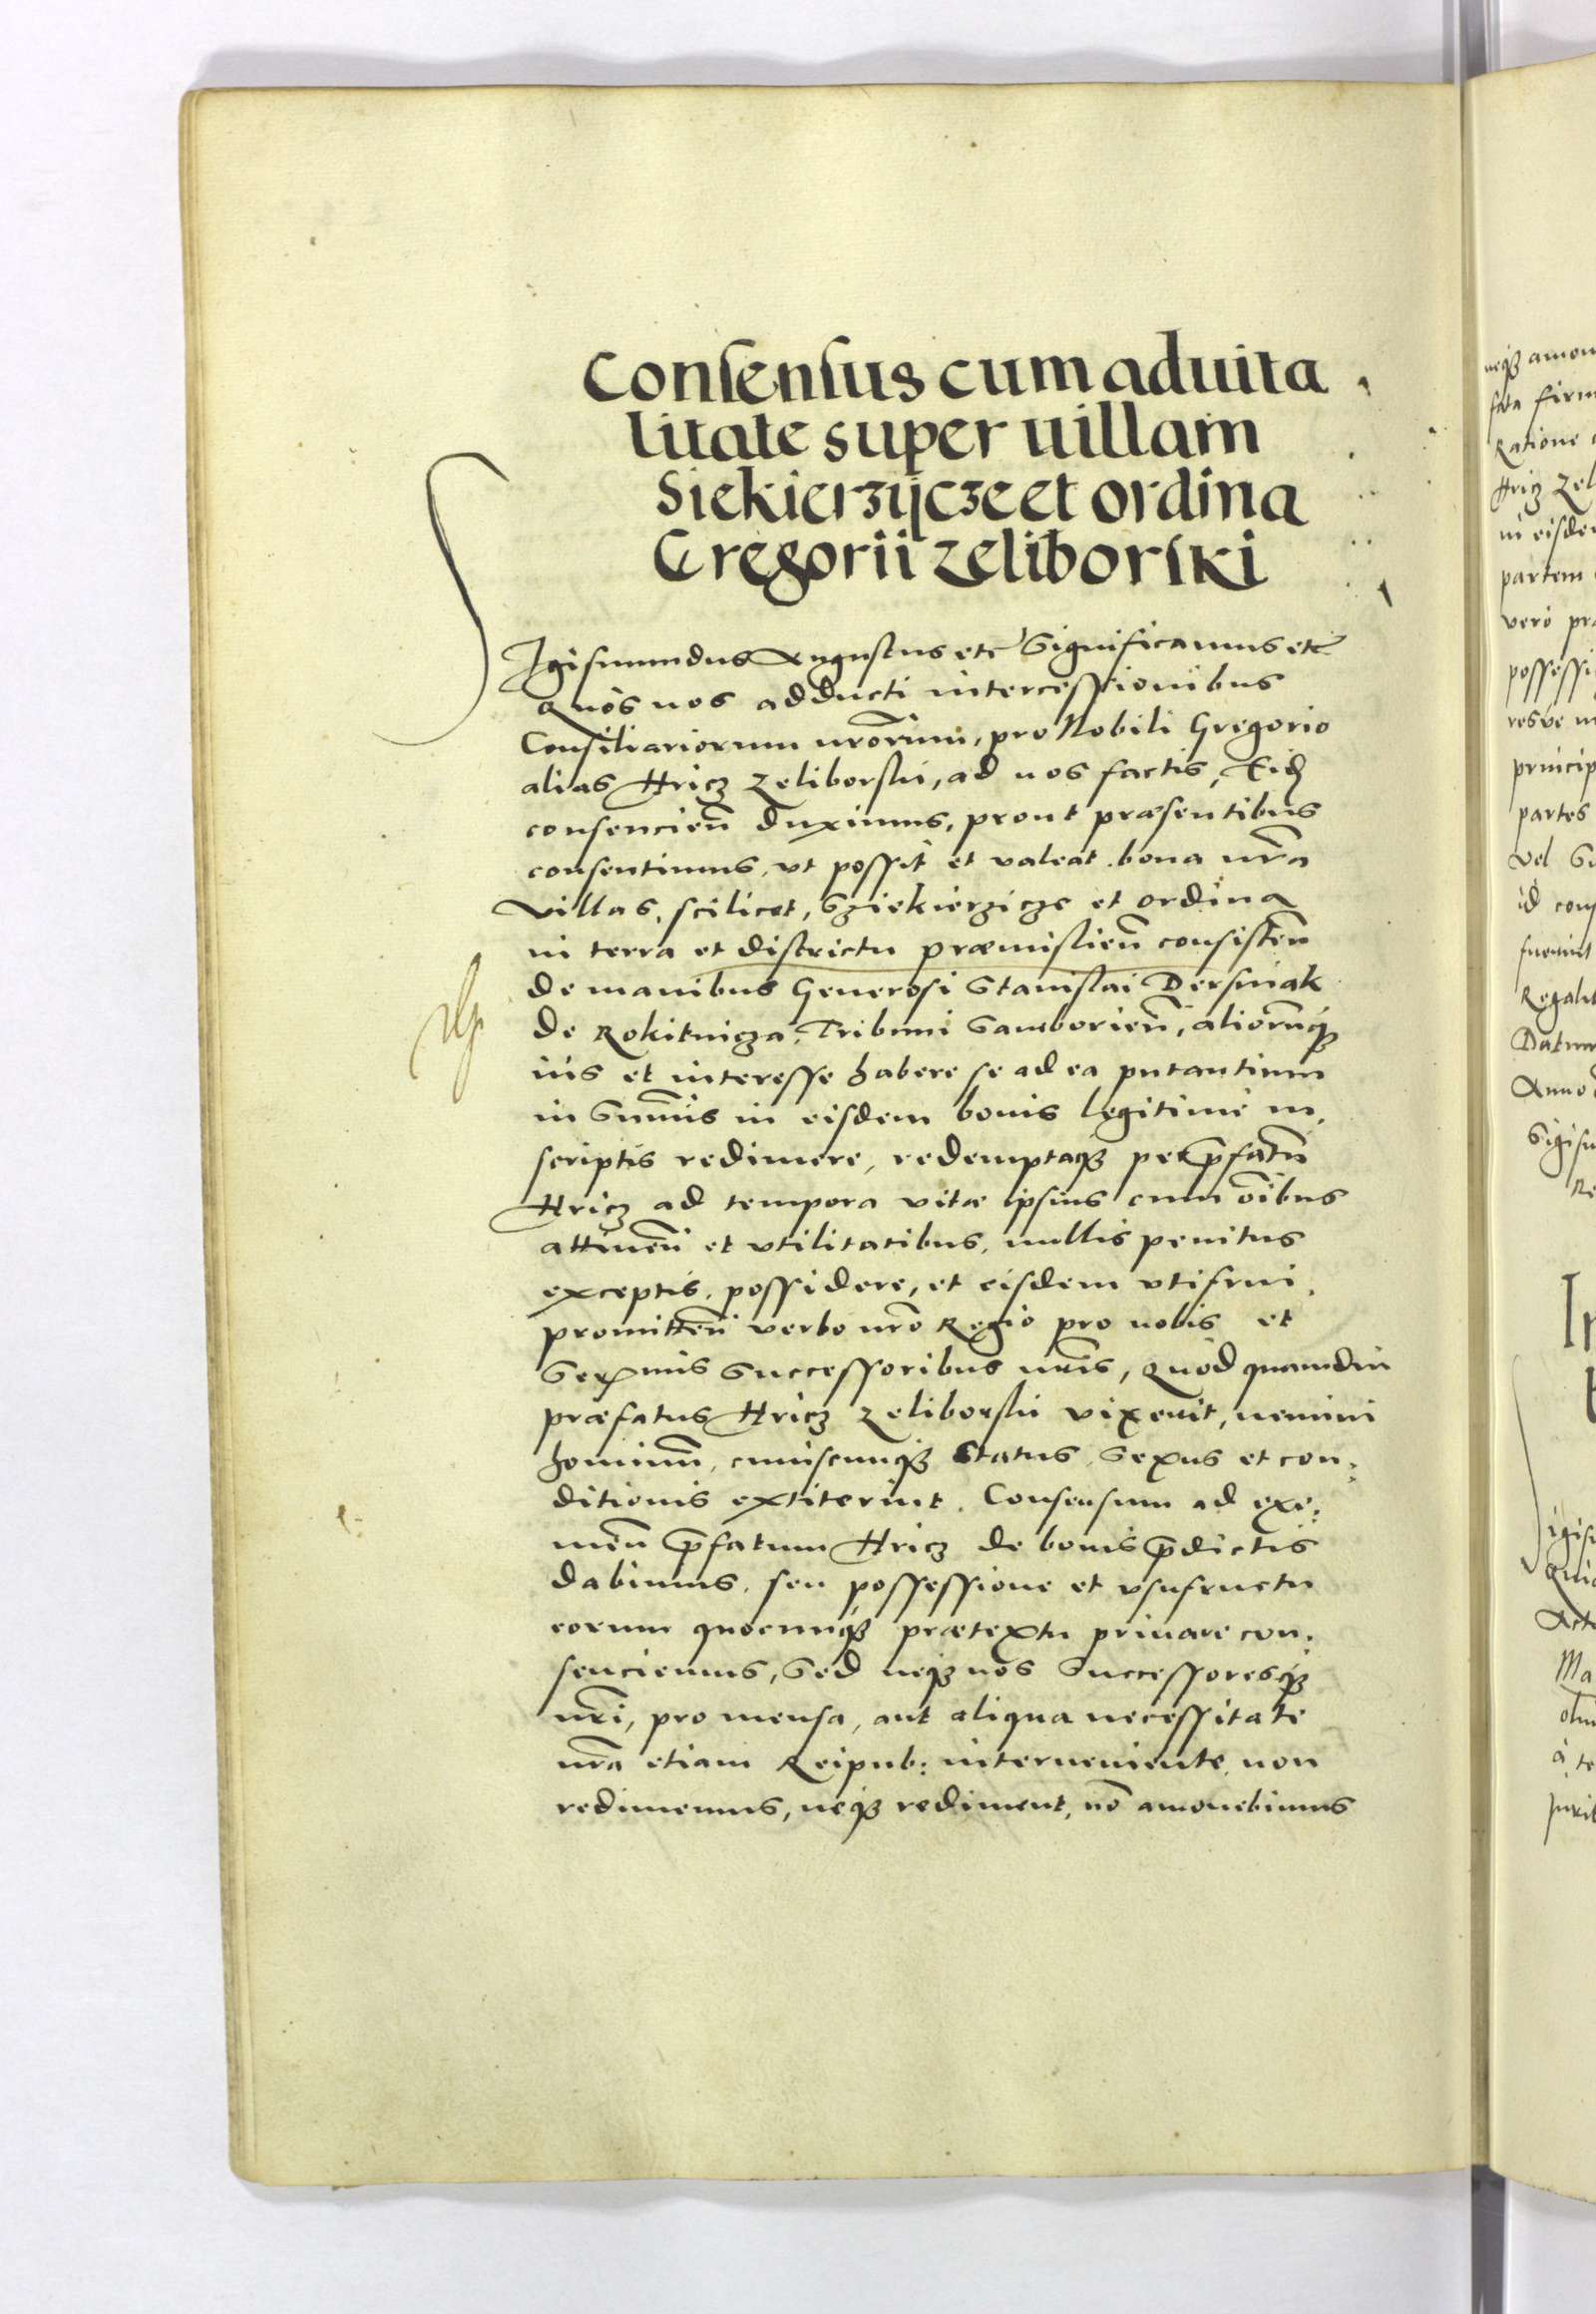 Consensus cum aduita
litate super uillam
Siekierzijcze et ordina
Gregorii Zeliborski
Sigismundus Augustus etc Significamus etc
Quòs nos adducti intercessionibus
Consiliariorum nrorum, pro Nobili Gregorio
alias Hricz Zeliborski, ad nos factis, Eid
consencien duximus, prout præsentibus
consentimus, vt possit et valeat bona nra
villas, scilicet, Sziekierzicze et Ordina
in terra et districtu præmislien consisten
de manibus Generosi Stanislai Dersniak
de Rokitnicza, Tribuni Samborien, aliorumq3
iùs et interesse habere se ad ea putantium
in Summis in eisdem bonis legitimè in,
scriptis redimere, redemptaq3 per pfatum
Hricz ad tempora vitæ ipsius cum oibus
attinen et vtilitatibus, nullis penitus
exceptis, possidere, et eisdem vtifrui,
promitten verbo nro Regio pro nobis et
Serenmis Successoribus nris, Quòd quamdiu
præfatus Hricz Zeliborski vixerit, nemini
hominum, cuiuscunq3 Status, Sexus et con:
ditionis extiterint. Consensum ad exi:
men pfatum Hricz de bonis pdictis
dabimus, seu possessione et vsufructu
eorum quocunq3 prætextu priuare con,
senciemus, Sed neq3 nos Successoresq3
nri, pro mensa, aut aliqua necessitate
nra etiam Reipub: interueniente, non
redimemus, neq3 rediment, nõ amouebimus